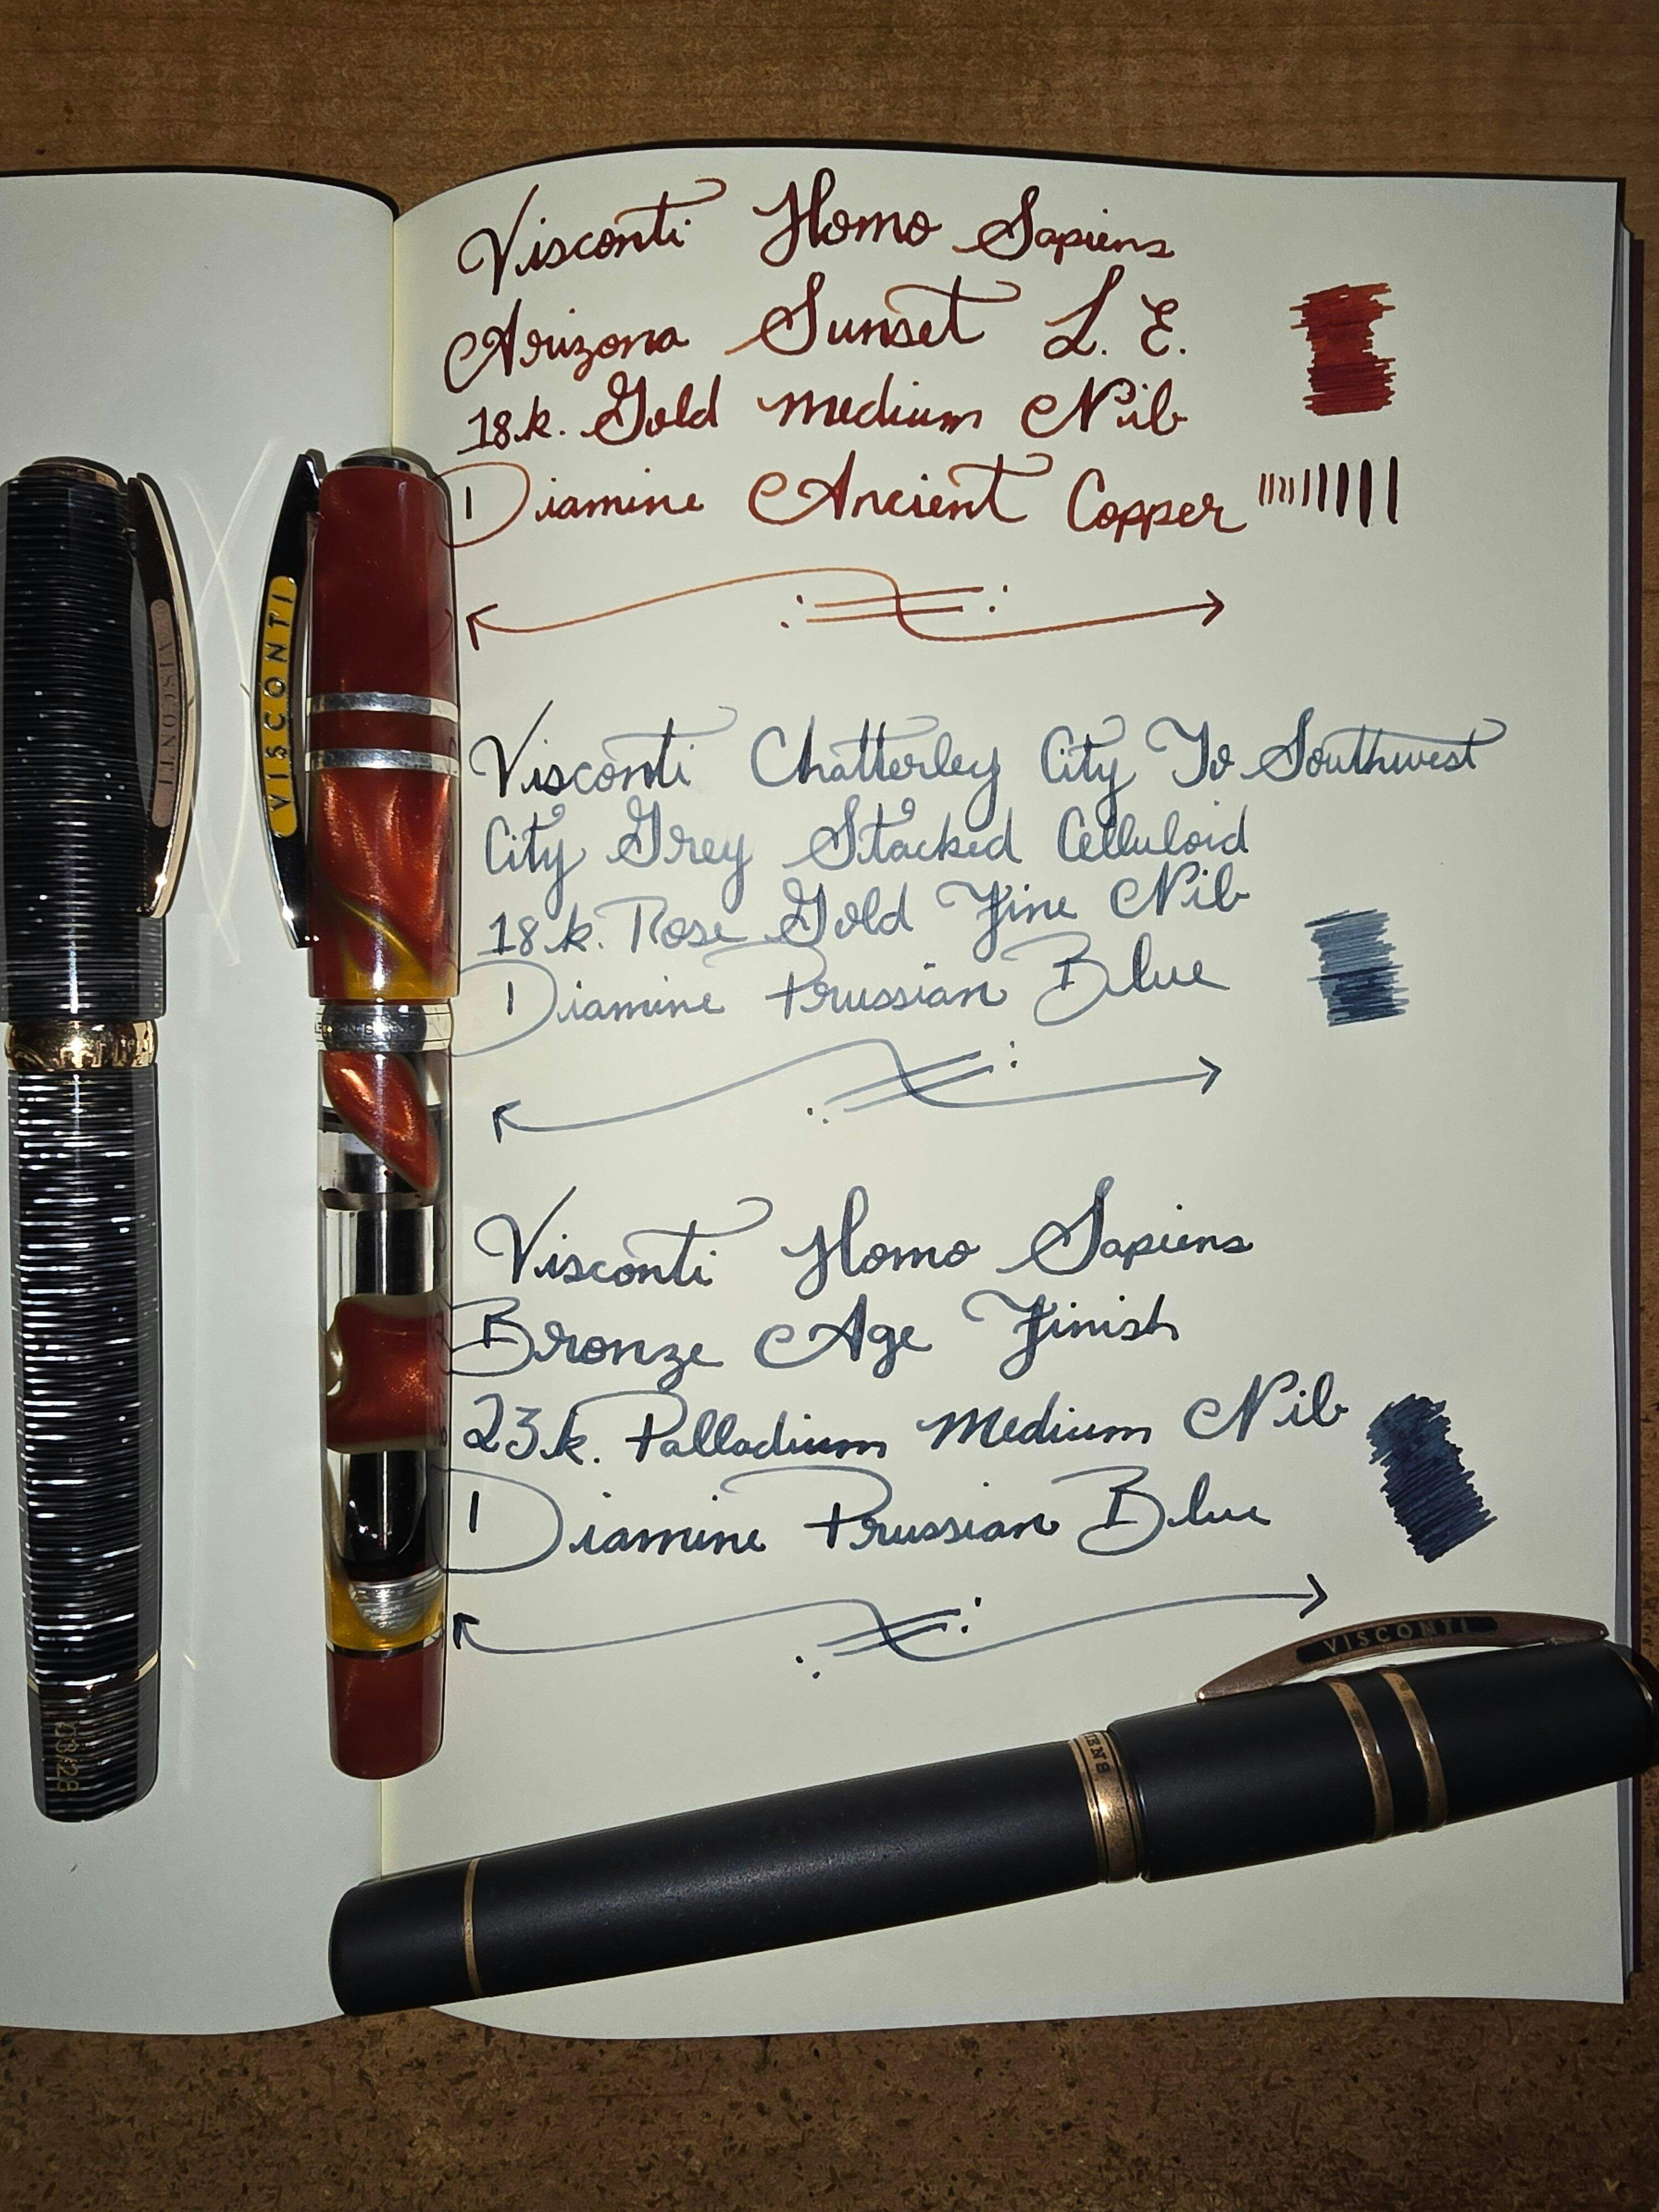 Visconti Homo Sapiens
Arizona Sunset L. E.
18.k. Gold Medium Nib
Diamine Ancient Copper
Visconti Chatterley City To Southwest
City Grey Stacked Celluloid
18.k. Rose Gold Fine Nib
Diamine Prussian Blue
Visconti Homo Sapiens
Bronze Age Finish
23.k. Palladium Medium Nib
Diamine Prussian Blue
VISCONTI
VISCONTI
VISCONTI
08/28